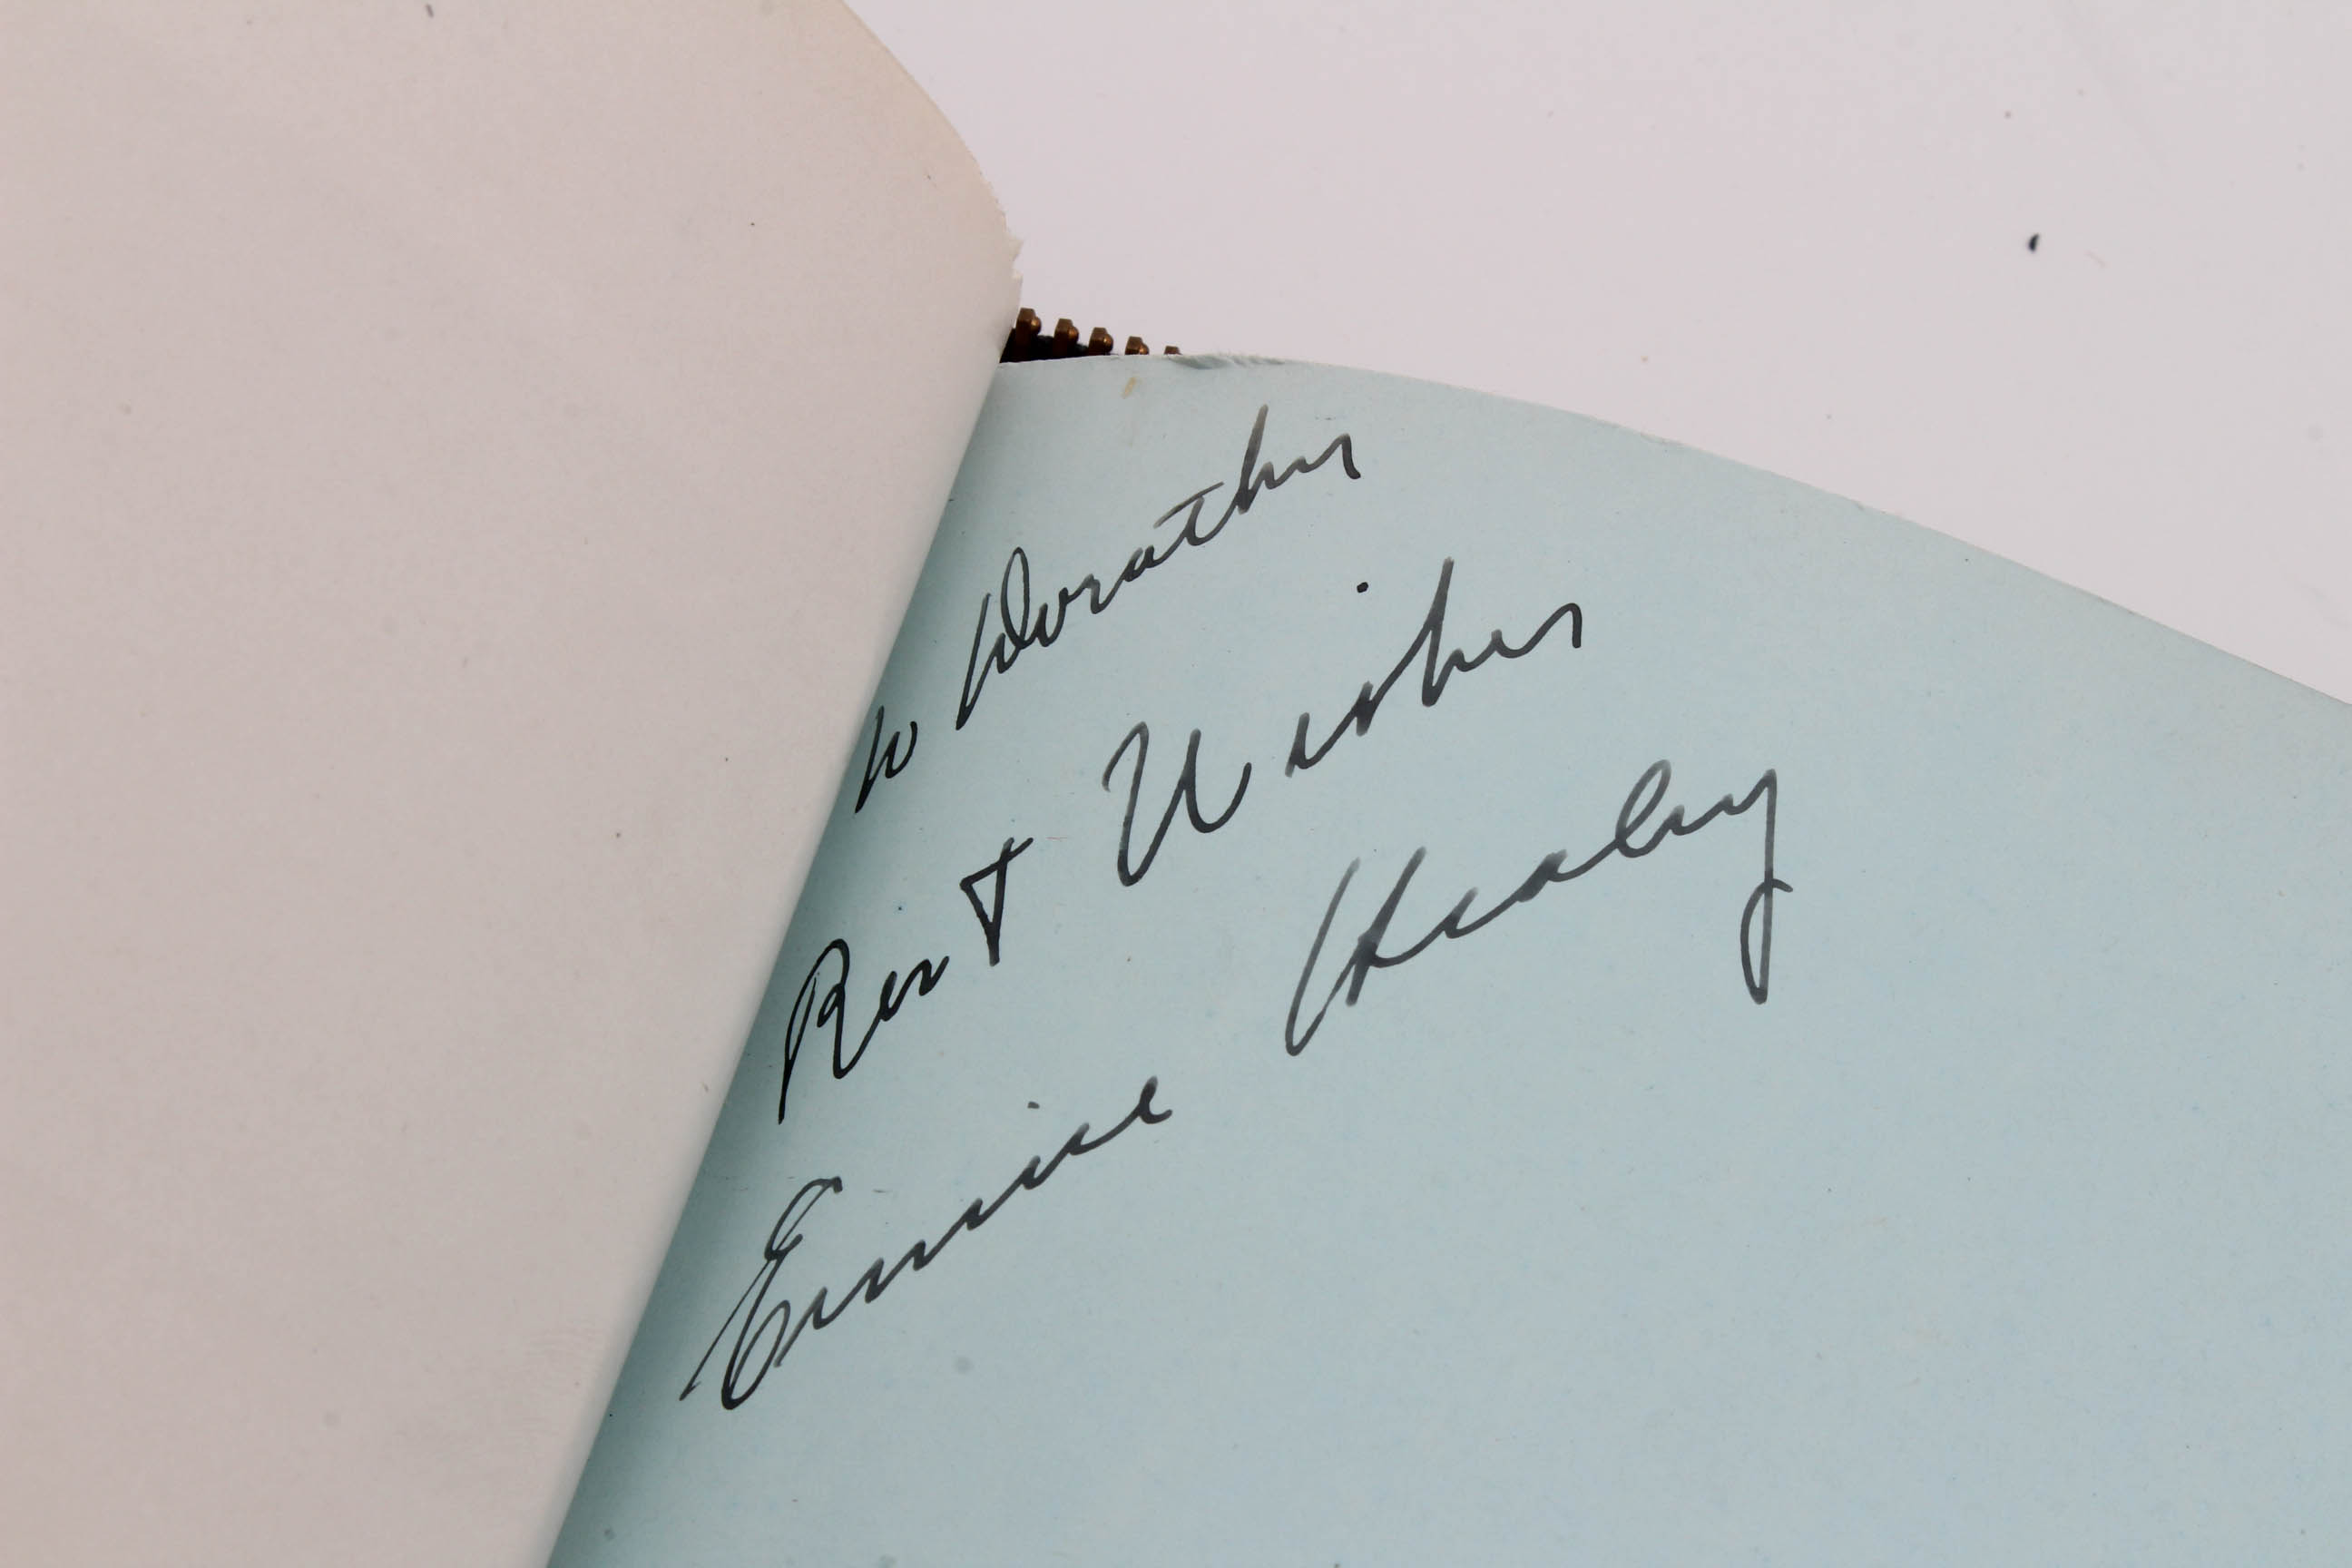 to Dorothy
Best Wishes
Eunice Healey